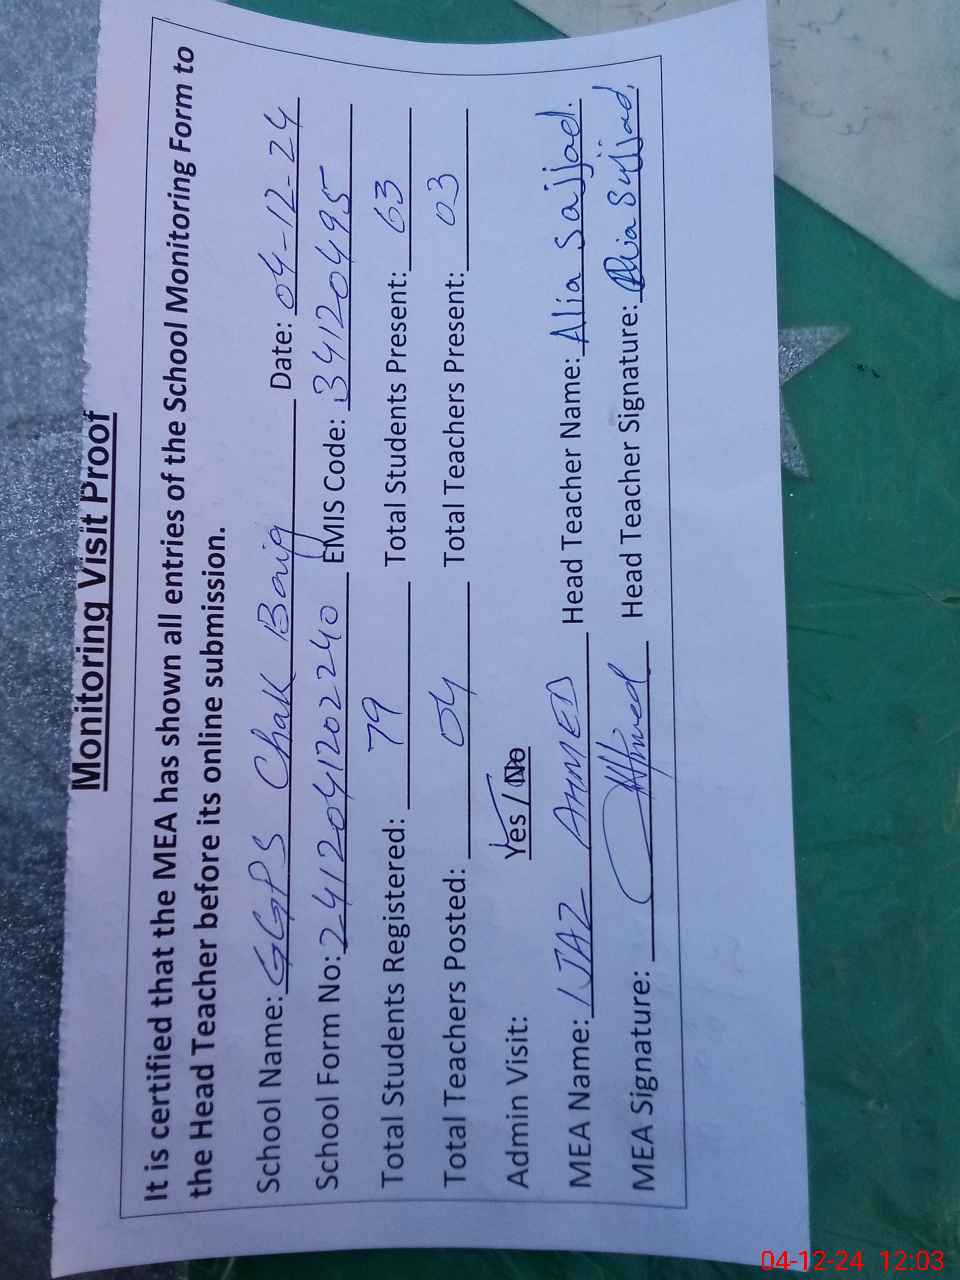 Monitoring Visit Proof
It is certified that the MEA has shown all entries of the School Monitoring Form to
the Head Teacher before its online submission.
School Name: GGPS Chak Baig Date: 04-12-24
School Form No: 2412041202240 EMIS Code: 34120495
Total Students Registered: 79 Total Students Present: 63
Total Teachers Posted: 04 Total Teachers Present: 03
Admin Visit: Yes / No
MEA Name: IJAZ AHMED Head Teacher Name: Alia Sajjad.
MEA Signature: Ahmed Head Teacher Signature: Alia Sajjad.
04-12-24 12:03